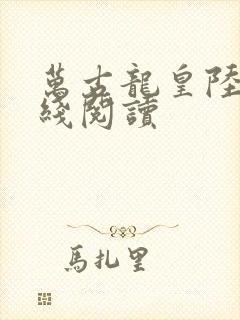 萬古龍皇陸
綫閱讀
馬扎里